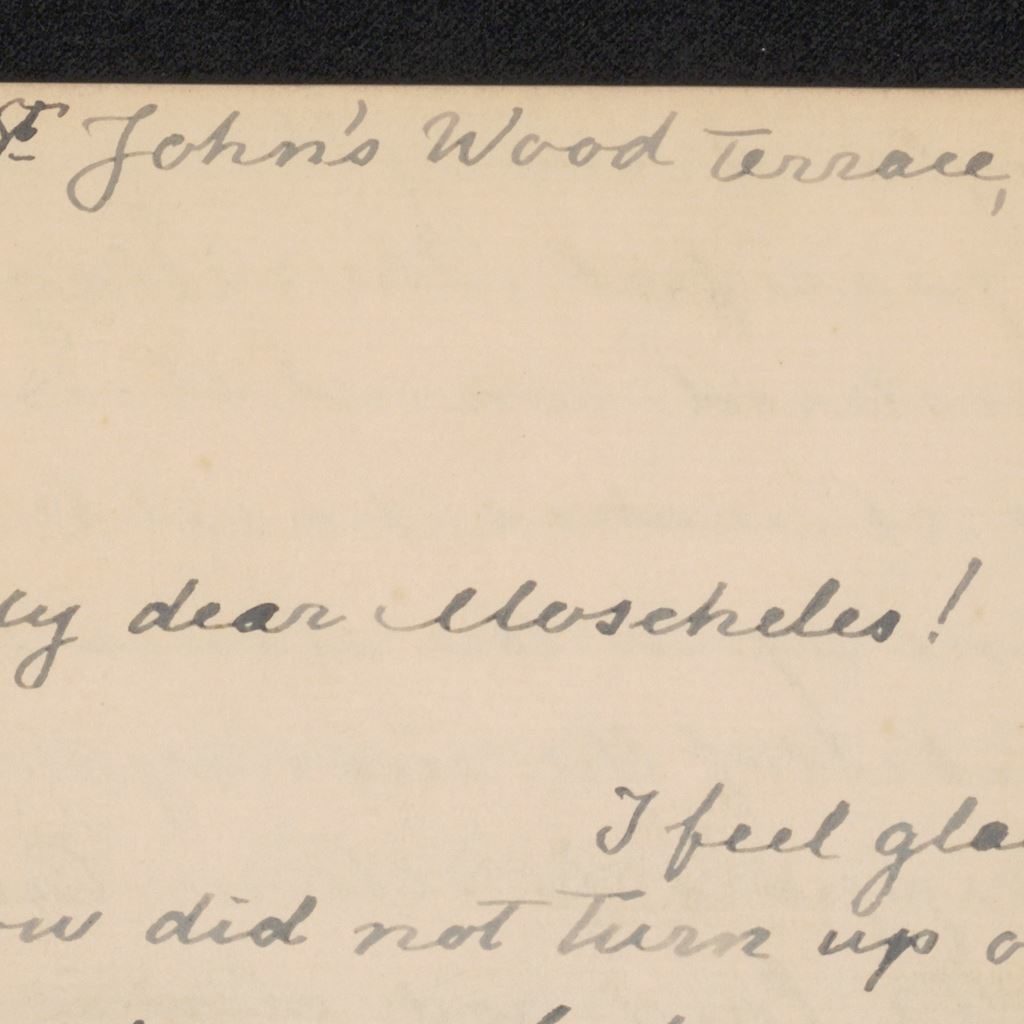 St John's Wood Terrace,
My dear Moscheles!
I feel gla
ow did not turn up o